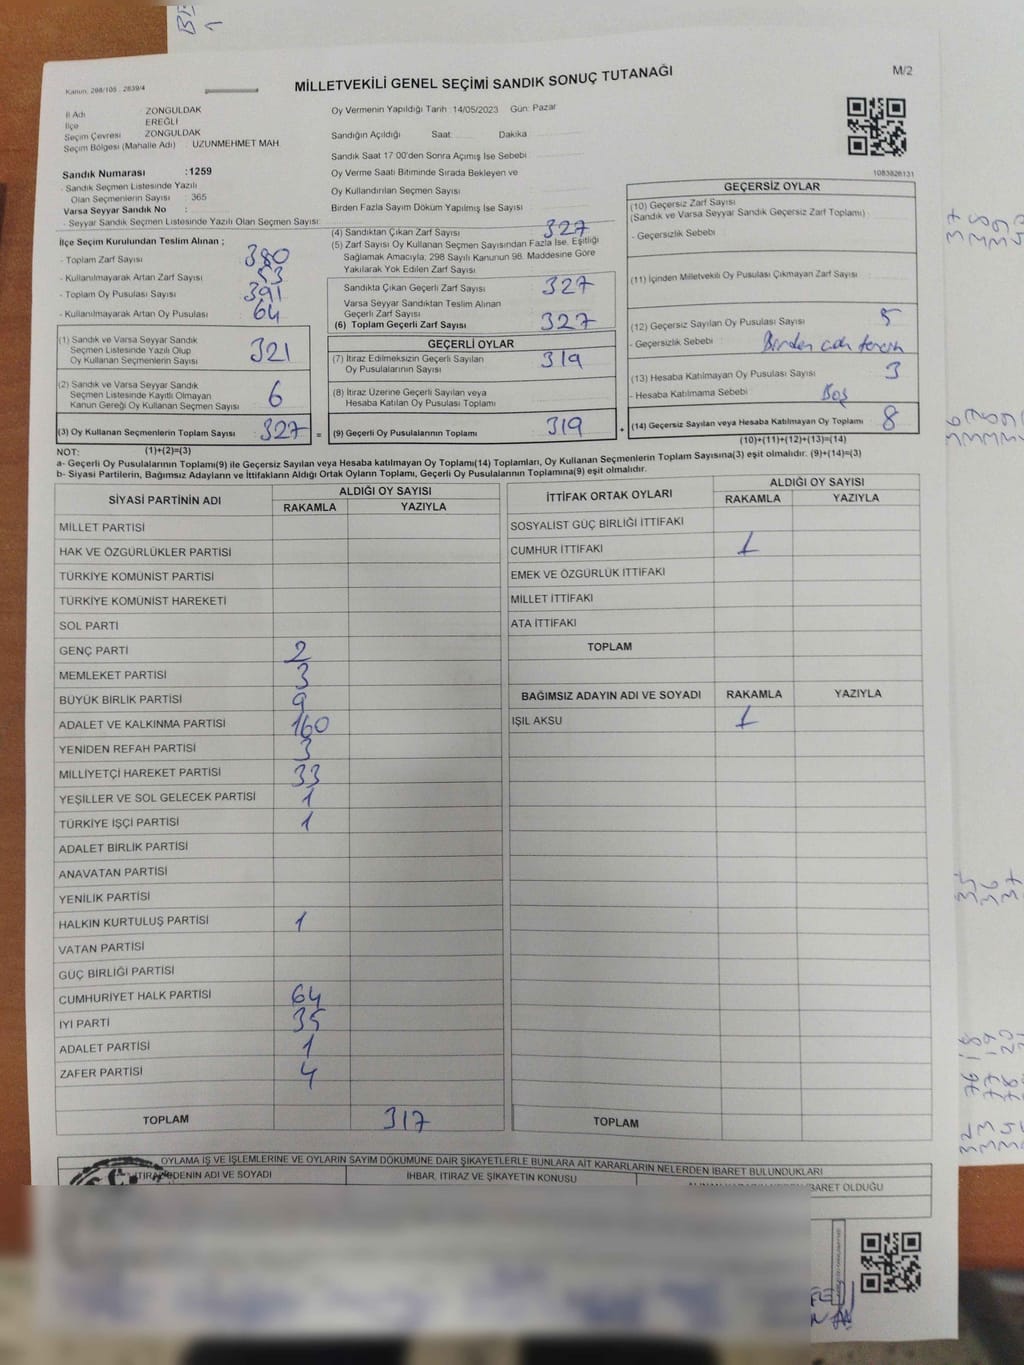 Kanun: 298/105 2839/4
MİLLETVEKİLİ GENEL SEÇİMİ SANDIK SONUÇ TUTANAĞI
M/2
İl Adı : ZONGULDAK
İlçe : EREĞLİ
Seçim Çevresi : ZONGULDAK
Seçim Bölgesi (Mahalle Adı) : UZUNMEHMET MAH.
Sandık Numarası :1259
- Sandık Seçmen Listesinde Yazılı
Olan Seçmenlerin Sayısı : 365
Varsa Seyyar Sandık No :
- Seyyar Sandık Seçmen Listesinde Yazılı Olan Seçmen Sayısı:
İlçe Seçim Kurulundan Teslim Alınan ;
- Toplam Zarf Sayısı 380
- Kullanılmayarak Artan Zarf Sayısı 53
- Toplam Oy Pusulası Sayısı 391
- Kullanılmayarak Artan Oy Pusulası 64
(1) Sandık ve Varsa Seyyar Sandık
Seçmen Listesinde Yazılı Olup
Oy Kullanan Seçmenlerin Sayısı 321
(2) Sandık ve Varsa Seyyar Sandık
Seçmen Listesinde Kayıtlı Olmayan
Kanun Gereği Oy Kullanan Seçmen Sayısı 6
(3) Oy Kullanan Seçmenlerin Toplam Sayısı 327 =
(1)+(2)=(3)
Oy Vermenin Yapıldığı Tarih : 14/05/2023 Gün: Pazar
Sandığın Açıldığı Saat: Dakika
Sandık Saat 17:00'den Sonra Açımış İse Sebebi
Oy Verme Saati Bitiminde Sırada Bekleyen ve
Oy Kullandırılan Seçmen Sayısı
Birden Fazla Sayım Döküm Yapılmış İse Sayısı
(4) Sandıktan Çıkan Zarf Sayısı 327
(5) Zarf Sayısı Oy Kullanan Seçmen Sayısından Fazla İse, Eşitliği
Sağlamak Amacıyla; 298 Sayılı Kanunun 98. Maddesine Göre
Yakılarak Yok Edilen Zarf Sayısı
Sandıkta Çıkan Geçerli Zarf Sayısı 327
Varsa Seyyar Sandıktan Teslim Alınan
Geçerli Zarf Sayısı
(6) Toplam Geçerli Zarf Sayısı 327
GEÇERLİ OYLAR
(7) İtiraz Edilmeksizin Geçerli Sayılan
Oy Pusulalarının Sayısı 319
(8) İtiraz Üzerine Geçerli Sayılan veya
Hesaba Katılan Oy Pusulası Toplamı
(9) Geçerli Oy Pusulalarının Toplamı 319 +
1083828131
GEÇERSİZ OYLAR
(10) Geçersiz Zarf Sayısı
(Sandık ve Varsa Seyyar Sandık Geçersiz Zarf Toplamı) :
- Geçersizlik Sebebi
(11) İçinden Milletvekili Oy Pusulası Çıkmayan Zarf Sayısı
(12) Geçersiz Sayılan Oy Pusulası Sayısı 5
- Geçersizlik Sebebi : Birden
(13) Hesaba Katılmayan Oy Pusulası Sayısı 3
- Hesaba Katılmama Sebebi Boş
(14) Geçersiz Sayılan veya Hesaba Katılmayan Oy Toplamı 8
(10)+(11)+(12)+(13)=(14)
NOT:
a- Geçerli Oy Pusulalarının Toplamı(9) ile Geçersiz Sayılan veya Hesaba katılmayan Oy Toplamı(14) Toplamları, Oy Kullanan Seçmenlerin Toplam Sayısına(3) eşit olmalıdır. (9)+(14)=(3)
b- Siyasi Partilerin, Bağımsız Adayların ve İttifakların Aldığı Ortak Oyların Toplamı, Geçerli Oy Pusulalarının Toplamına(9) eşit olmalıdır.
SİYASİ PARTİNİN ADI ALDIĞI OY SAYISI
RAKAMLA YAZIYLA
MİLLET PARTİSİ
HAK VE ÖZGÜRLÜKLER PARTİSİ
TÜRKİYE KOMÜNİST PARTİSİ
TÜRKİYE KOMÜNİST HAREKETİ
SOL PARTİ
GENÇ PARTİ 2
MEMLEKET PARTİSİ 3
BÜYÜK BİRLİK PARTİSİ 9
ADALET VE KALKINMA PARTİSİ 160
YENİDEN REFAH PARTİSİ 3
MİLLİYETÇİ HAREKET PARTİSİ 33
YEŞİLLER VE SOL GELECEK PARTİSİ 1
TÜRKİYE İŞÇİ PARTİSİ 1
ADALET BİRLİK PARTİSİ
ANAVATAN PARTİSİ
YENİLİK PARTİSİ
HALKIN KURTULUŞ PARTİSİ 1
VATAN PARTİSİ
GÜÇ BİRLİĞİ PARTİSİ
CUMHURİYET HALK PARTİSİ 64
İYİ PARTİ 35
ADALET PARTİSİ 1
ZAFER PARTİSİ 4
TOPLAM 317
İTTİFAK ORTAK OYLARI ALDIĞI OY SAYISI
RAKAMLA YAZIYLA
SOSYALİST GÜÇ BİRLİĞİ İTTİFAKI
CUMHUR İTTİFAKI 1
EMEK VE ÖZGÜRLÜK İTTİFAKI
MİLLET İTTİFAKI
ATA İTTİFAKI
TOPLAM
BAĞIMSIZ ADAYIN ADI VE SOYADI RAKAMLA YAZIYLA
IŞIL AKSU 1
TOPLAM
OYLAMA İŞ VE İŞLEMLERİNE VE OYLARIN SAYIM DÖKÜMÜNE DAİR ŞİKAYETLERLE BUNLARA AİT KARARLARIN NELERDEN İBARET BULUNDUKLARI
İTİRAZ EDENİN ADI VE SOYADI İHBAR, İTİRAZ VE ŞİKAYETİN KONUSU